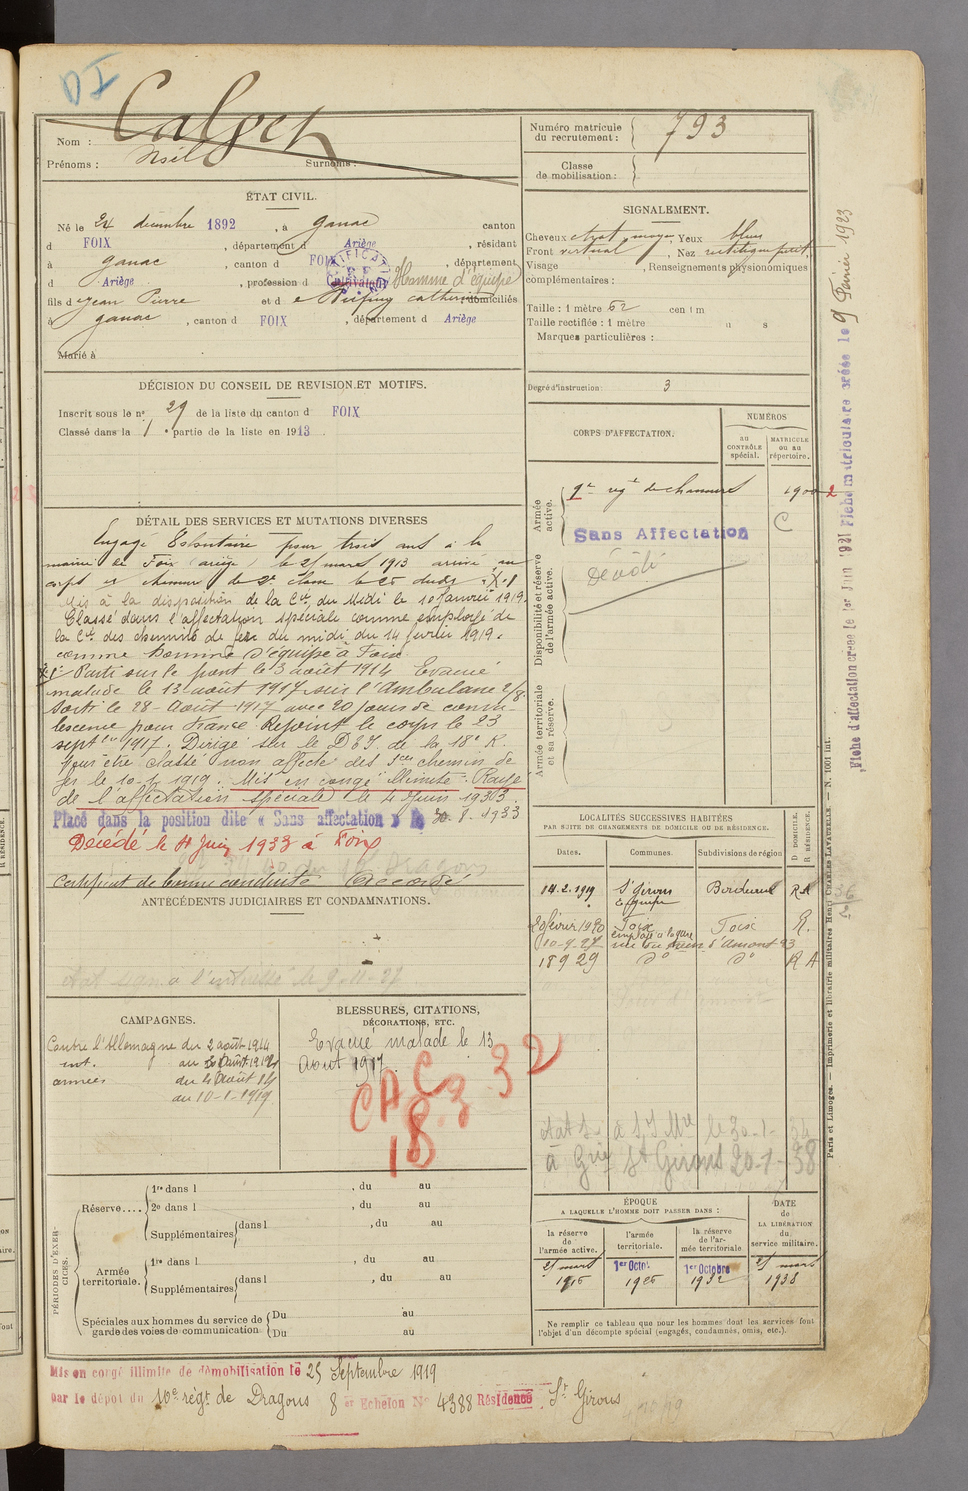 DI
Nom : Calvet
Prénoms : Noël Surnoms :
Numéro matricule du recrutement : 793
Classe de mobilisation :
ÉTAT CIVIL.
Né le 24 décembre 1892, à Ganac canton
d FOIX, département d Ariège, résidant
à Ganac, canton d FOIX, département
d Ariège, profession d Cultivateur Homme d'équipe
fils d e Jean Pierre et d e Catherine domiciliés
à Ganac, canton d FOIX, département d Ariège
Marié à
SIGNALEMENT.
Cheveux chat. moyen, Yeux bleus
Front vertical, Nez rectiligne petit,
Visage , Renseignements physionomiques
complémentaires :
Taille : 1 mètre 62 centim
Taille rectifiée : 1 mètre
Marques particulières :
Degré d'instruction : 3
DÉCISION DU CONSEIL DE REVISION ET MOTIFS.
Inscrit sous le n° 29 de la liste du canton d FOIX
Classé dans la 1 e partie de la liste en 1913.
CORPS D'AFFECTATION.
NUMÉROS
au CONTRÔLE spécial.
MATRICULE ou au répertoire.
Armée active.
régt de chasseurs 1900
Sans Affectation
C
Disponibilité et réserve de l'armée active.
Décédé
Armée territoriale et sa réserve.
DÉTAIL DES SERVICES ET MUTATIONS DIVERSES
Engagé Volontaire pour trois ans à la
mairie de Foix (Ariège) le 25 mars 1913 arrivé au
corps et chasseur de 2e classe le 25 dudit
Mis à la disposition de la Cie du Midi le 10 Janvier 1919.
Classé dans l'affectation spéciale comme employé de
la Cie des chemins de fer du midi du 14 février 1919.
comme homme d'équipe à Foix
Parti sur le front le 3 août 1914 Evacué
malade le 13 août 1917 sur l'Ambulance 2/8.
Sorti le 28 Août 1917 avec 20 jours de conva-
lescence pour France. Rejoint le corps le 23
septbre 1917. Dirigé sur le D de la 18e R.
Pour être classé non affecté des chemin de
fer le 10-1-1919. Mis en congé illimité. Rayé
de l'affectation spéciale le 4 Juin 1933
Placé dans la position dite « Sans affectation » le 8-1933
Décédé le Juin 1933 à Foix
Certificat de bonne conduite Accordé
ANTÉCÉDENTS JUDICIAIRES ET CONDAMNATIONS.
LOCALITÉS SUCCESSIVES HABITÉES
PAR SUITE DE CHANGEMENTS DE DOMICILE OU DE RÉSIDENCE.
Dates. Communes. Subdivisions de région D DOMICILE. R RÉSIDENCE.
14.2.1919 St Girons Bordeaux R
20 février 1920 Foix Foix R.
employé à la gare
10-9-27
18 9 29 do do R A
CAMPAGNES.
Contre l'Allemagne du 2 août 1914
int. au 3 Août 1914
armées du 4 Août 14
au 10-1-1919
BLESSURES, CITATIONS,
DÉCORATIONS, ETC.
Evacué malade le 13
Août 1917.
CAC
18.3.32
PÉRIODES D'EXERCICES.
Réserve.... 1re dans l , du au
2e dans l , du au
Supplémentaires dans l , du au
Armée territoriale. 1re dans l , du au
Supplémentaires dans l , du au
Spéciales aux hommes du service de garde des voies de communication Du au
Du au
ÉPOQUE
A LAQUELLE L'HOMME DOIT PASSER DANS :
la réserve de l'armée active.
l'armée territoriale.
la réserve de l'armée territoriale
DATE de LA LIBÉRATION du service militaire.
25 mars 1916
1er Octob. 1926
1er Octobre 1932
25 mars 1938
Ne remplir ce tableau que pour les hommes dont les services font
l'objet d'un décompte spécial (engagés, condamnés, omis, etc.).
Mis en congé illimité de démobilisation le 25 Septembre 1919
par le dépôt du 10e régt. de Dragons 8 Echelon No 4388 Résidence St Girons
Fiche d'affectation créée le 1er Juin 1921 Fiche matriculaire créée le 9 Février 1923
Paris et Limoges. — Imprimerie et librairie militaires Henri CHARLES-LAVAUZELLE. — N. 1001 int.